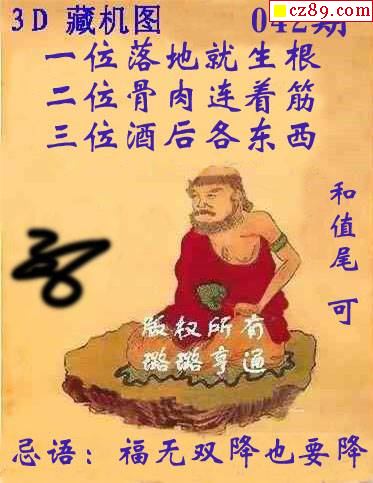 cz89.com
3D 藏机图 042期
一位落地就生根
二位骨肉连着筋
三位酒后各东西
和值尾 可
版权所有
璐璐亨通
忌语：福无双降也要降